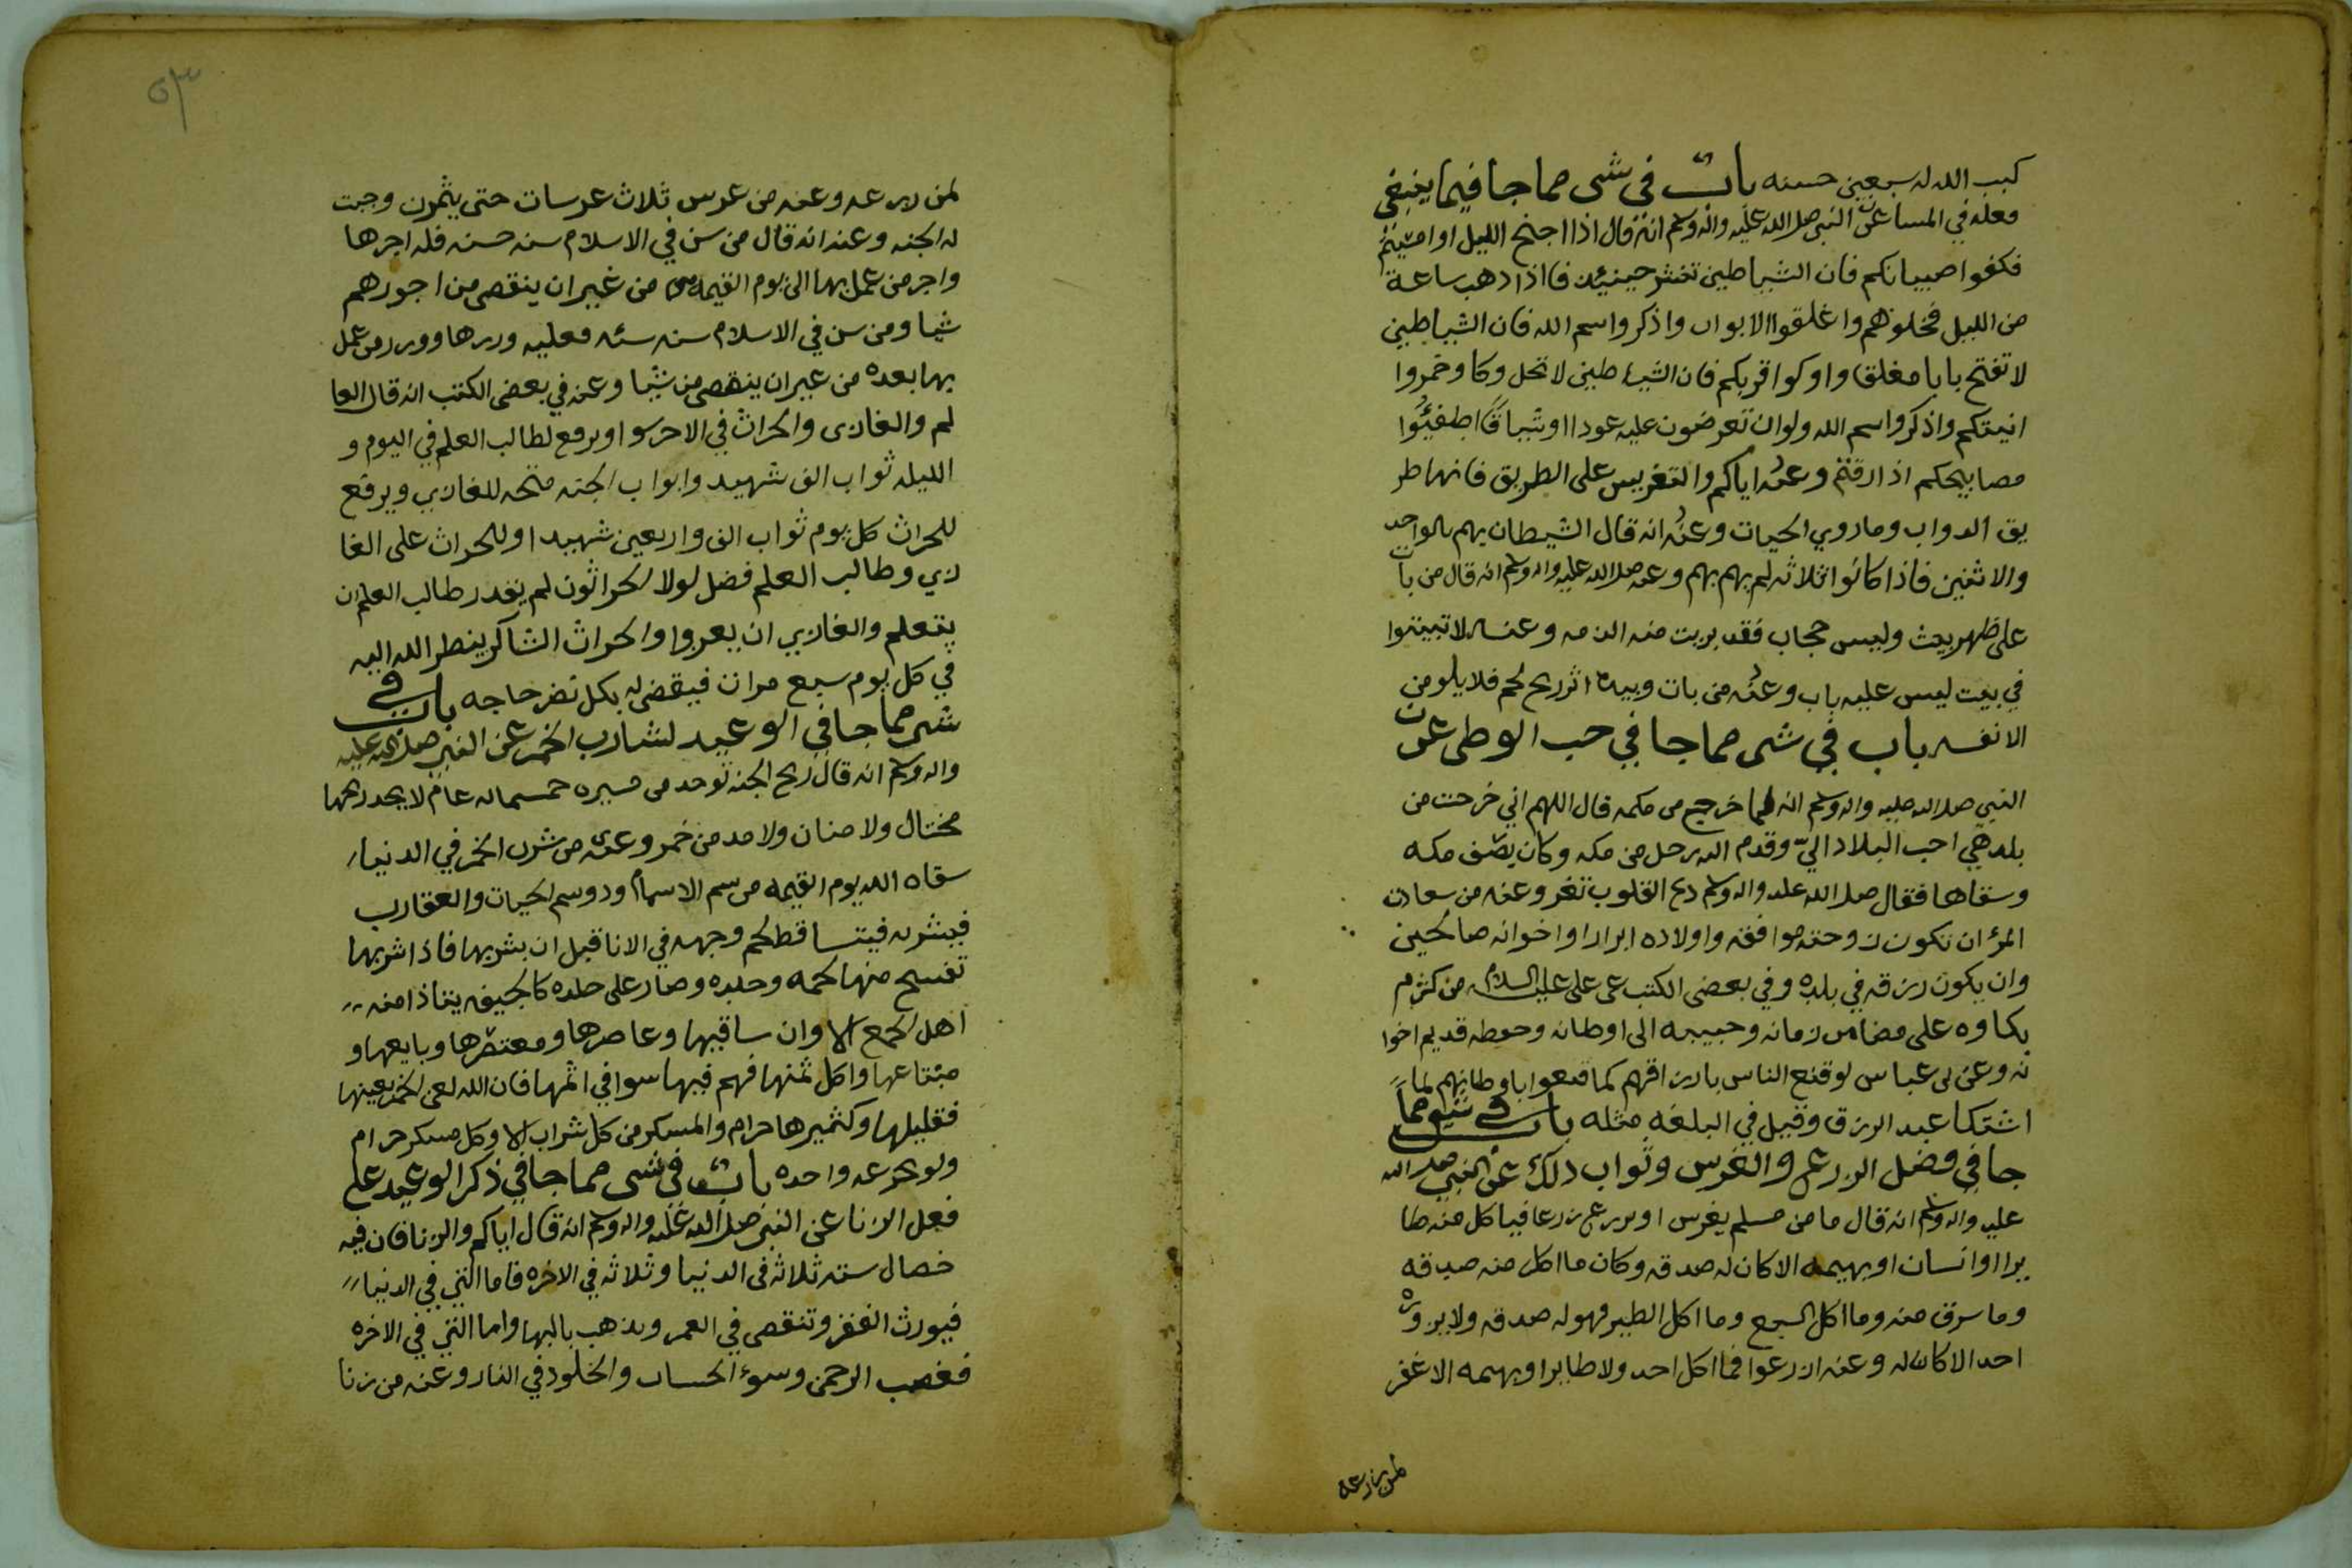 كبب الله له سبعين حسنه باب في شي مما جا فيما ينبغي
فعله في المسا عن النبي صلا الله عليه واله وسلم انه قال اذا اجنح الليل او امسيتم
فكفوا صبيانكم فان الشياطين تنتشر حينئذ فااذا ذهب ساعة
من الليل فخلوهم واغلقوا الابواب واذكروا اسم الله فان الشياطين
لا تفتح بابا مغلقا واوكوا قربكم فان الشياطين لا تحل وكا وخمروا
انيتكم واذكروا اسم الله ولو ان تعرضون عليه عودا او شياقا اطفئوا
مصابيحكم اذا رقدتم وعنه اياكم والتعريس على الطريق فانها طر
يق الدواب وماروي الحيات وعنه انه قال الشيطان يهم بالواحد
والاثنين فاذا كانوا ثلاثه لم يهم بهم وعنه صلا الله عليه واله وسلم انه قال من بات
على ظهر بيت وليس حجاب فقد بريت منه الذمه وعنه لا تبيتوا
في بيت ليس عليه باب وعنه من بات وبيده اثر ريح لحم فلا يلومن
الا نفسه باب في شي مما جا في حب الوطن عن
النبي صلا الله عليه واله وسلم انه لما خرج من مكه قال اللهم اني خرجت من
بلد هي احب البلاد الي وقدم اليه رجل من مكه وكان يصف مكه
وسقاها فقال صلا الله عليه واله وسلم دع القلوب تقر وعنه من سعادت
المرء ان تكون زوجته موافقه واولاده ابرارا واخوانه صالحين
وان يكون رزقه في بلده وفي بعض الكتب عن علي عليه السلام من كرم
بكاوه على ما مضا من زمانه وحبيبه الى اوطانه وحفظه قديم اخوا
نه وعن بن عباس لو قنع الناس بارزاقهم كما قنعوا باوطانهم لما
اشتكا عبد الرزق وقيل في البلغه مثله باب في شي مما
جا في فضل الزرع والغرس وثواب ذلك عن النبي صلا الله
عليه واله وسلم انه قال ما من مسلم يغرس او يزرع زرعا فياكل منه طا
يرا او انسان او بهيمه الا كان له صدقه وكان ما اكل منه صدقه
وما سرق منه وما اكل السبع وما اكل الطير فهو له صدقه ولا يرزوه
احد الا كان له وعنه ازرعوا فما اكل احد ولا طايرا وبهيمه الا غفر
لمن زارعه
٥٣
لمن زرعه وعنه من غرس ثلاث غرسات حتى يثمرن وجبت
له الجنه وعنه انه قال من سن في الاسلام سنه حسنه فله اجرها
واجر من عمل بها الى يوم القيمه من غير ان ينقص من اجورهم
شيا ومن سن في الاسلام سنه سيئه فعليه وزرها ووزر من عمل
بها بعده من غير ان ينقص من شيا وعنه في بعض الكتب انه قال العا
لم والغازى والحراث في الاجر سوا ويرفع لطالب العلم في اليوم و
الليله ثواب الف شهيد وابواب الجنه مفتحه للغازي ويرفع
للحراث كل يوم ثواب الف واربعين شهيدا وللحراث على الغا
زي وطالب العلم فضل لولا الحراثون لم يقدر طالب العلم ان
يتعلم والغازي ان يغروا والحراث الشاكر ينظر الله اليه
في كل يوم سبع مرات فيقضى له بكل نضر حاجه باب في
شي مما جا في الوعيد لشارب الخمر عن النبي صلا الله عليه
واله وسلم انه قال ريح الجنه توجد من مسيره خمسمايه عام لا يجد ريحها
مختال ولا منان ولا مد من خمر وعنه من شرب الخمر في الدنيا
سقاه الله يوم القيمه من سم الاسما ود وسم الحيات والعقارب
فيشربه فيتساقط لحم وجهه في الانا قبل ان يشربها فاذا شربها
تفسح منها لحمه وجلده وصار على جلده كالجيفه يتاذا منه
اهل الجمع الا وان ساقيها وعاصرها ومعتصرها وبايعها و
مبتاعها واكل ثمنها فهم فيها سوا في اثمها فان الله لعن الخمر بعينها
فقليلها وكثيرها حرام والمسكر من كل شراب الا وكل مسكر حرام
ولو بجرعه واحده باب في شي مما جا في ذكر الوعيد على
فعل الزنا عن النبي صلا الله عليه واله وسلم انه قال اياكم والزنا فان فيه
خصال سته ثلاثه في الدنيا وثلاثه في الاخره فاما التي في الدنيا
فيورث الفقر وتنقص في العمر ويذهب بالبها واما التي في الاخره
فغضب الرحمن وسوء الحساب والخلود في النار وعنه من زنا